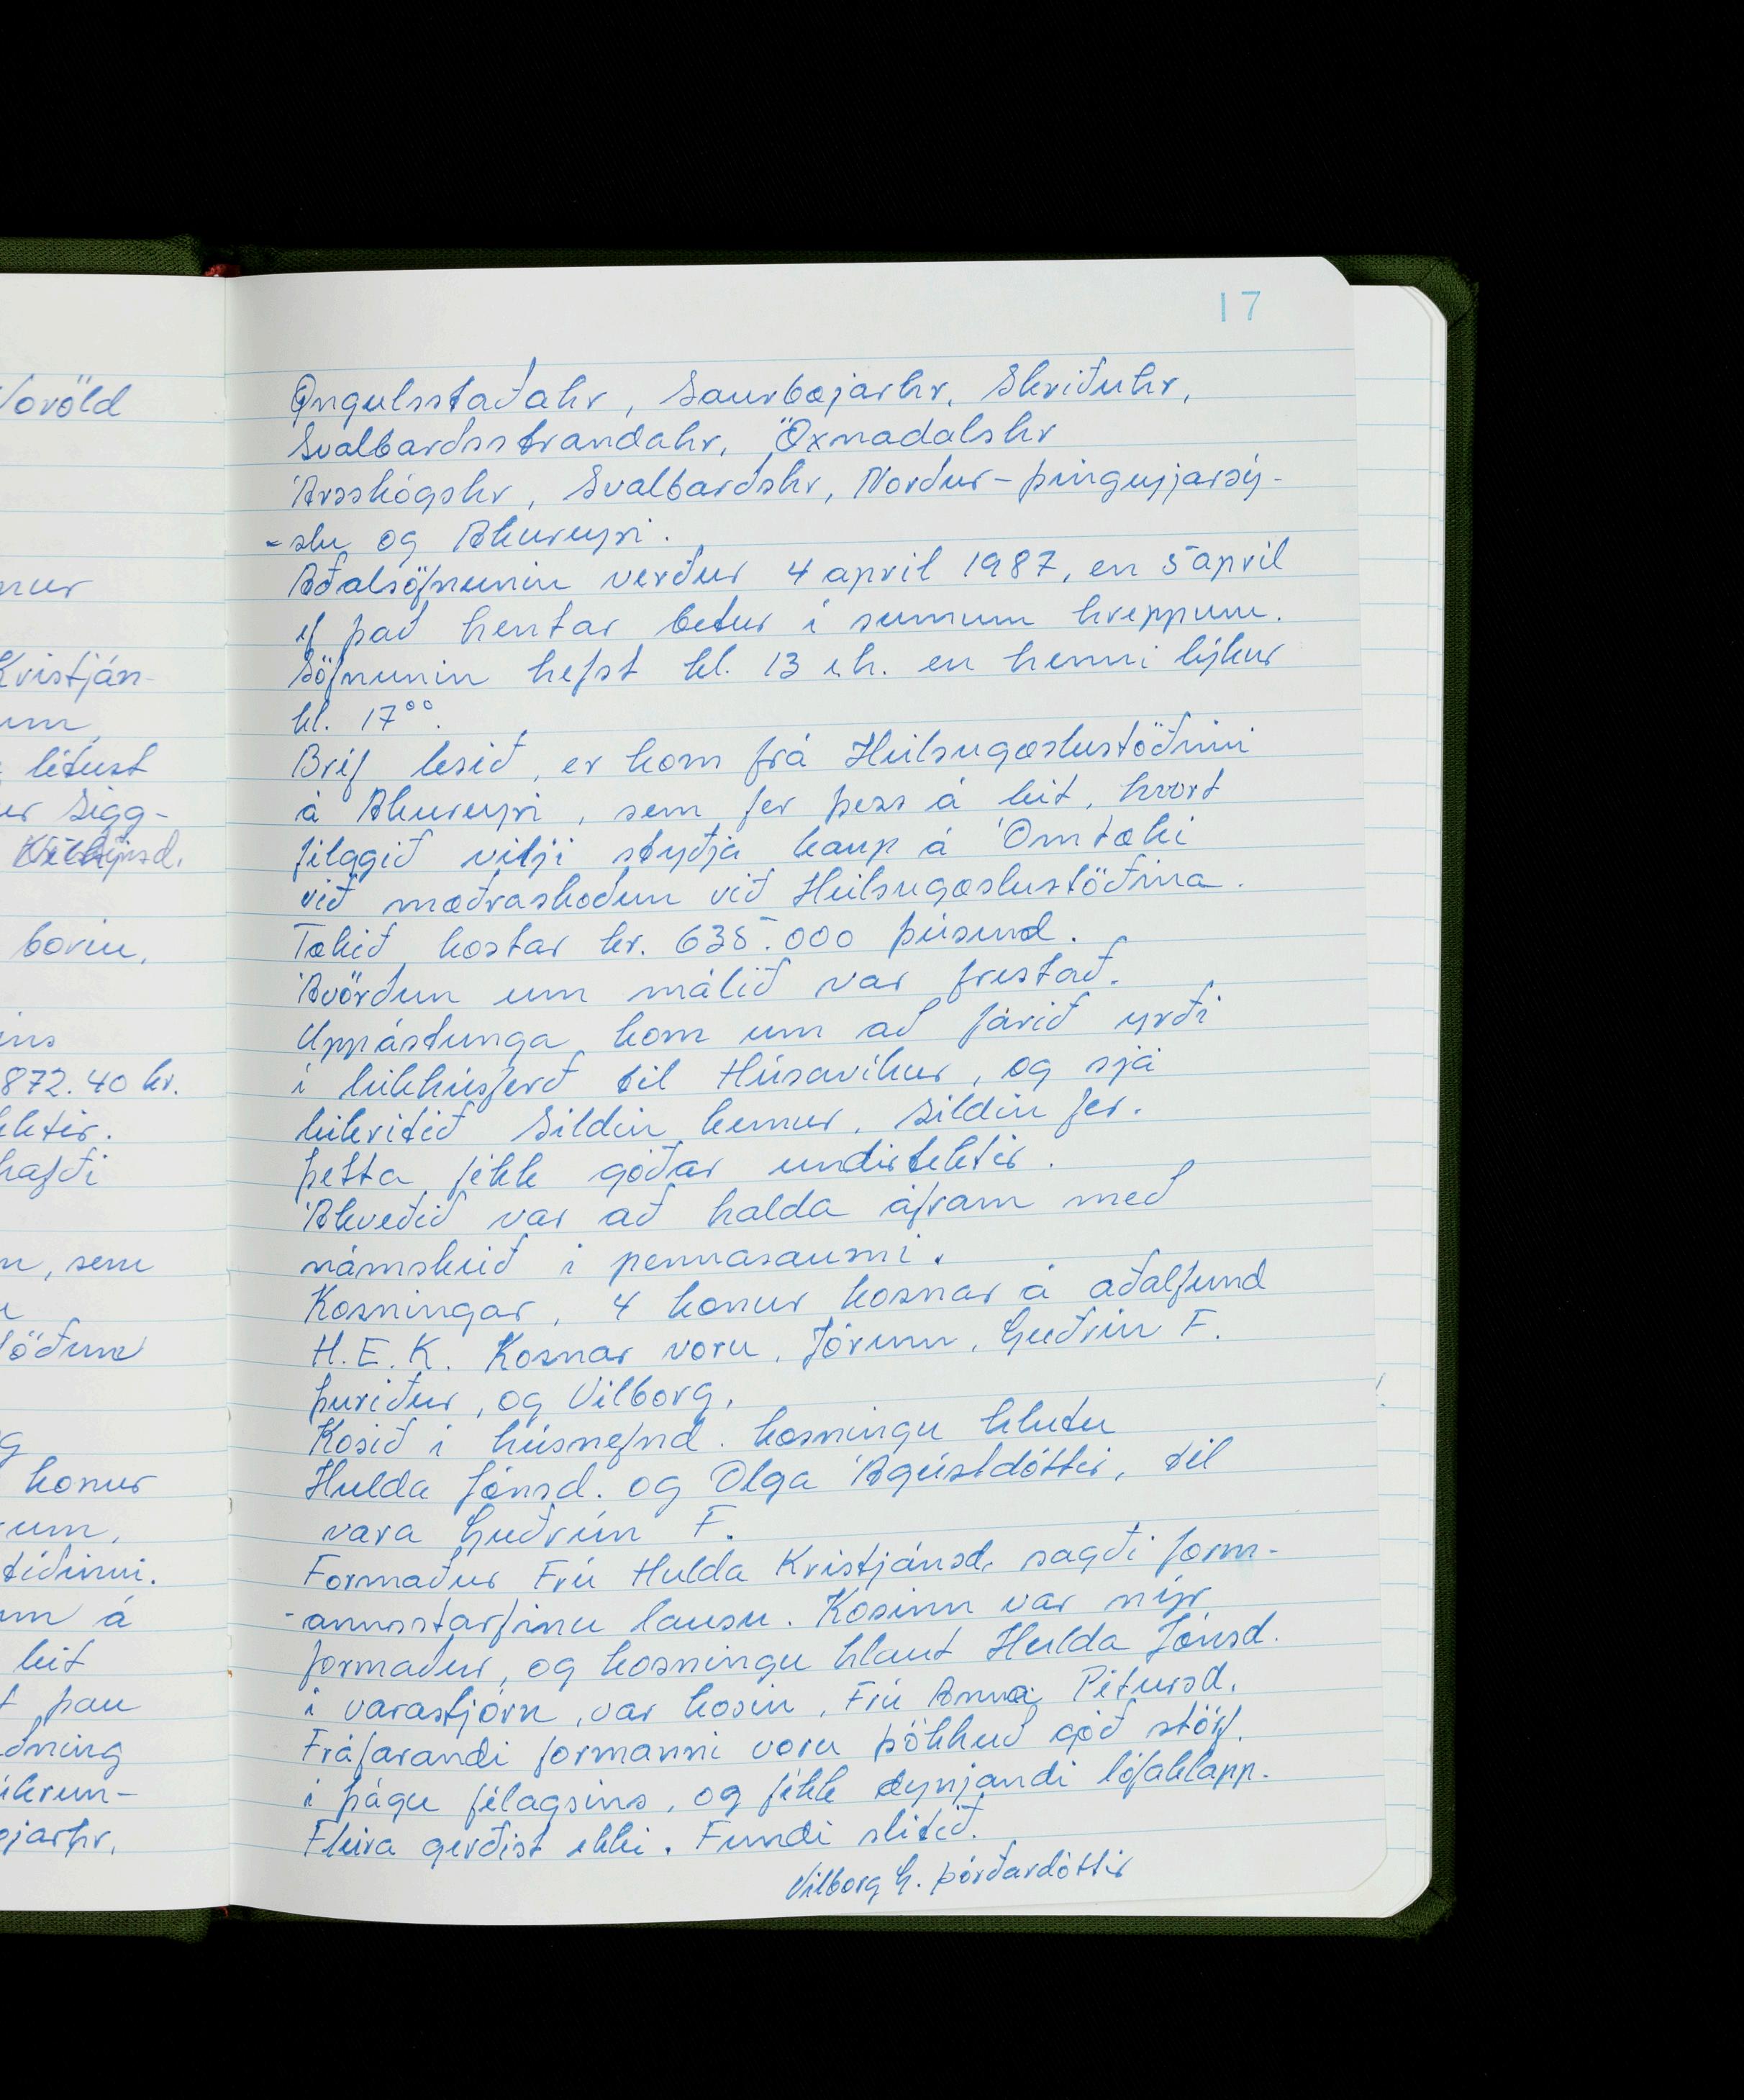 17
Öngulsstaðahr, Saurbæjarhr, Skriðuhr,
Svalbarðsstrandahr, Öxnadalshr
Ársskógshr, Svalbarðshr, Norður-þingeyjarsý-
-slu og Akureyri.
Aðalsöfnunin verður 4 apríl 1987, en 5 apríl
ef það hentar betur í sumum hreppum.
Söfnunin hefst kl. 13 e.h. en henni lýkur
kl. 17°°.
Bréf lesið, er kom frá Heilsugæslustöðinni
á Akureyri, sem fer þess á leit, hvort
félagið vilji styðja kaup á Ómtæki
við mæðraskoðun við Heilsugæslustöðina.
Tækið kostar kr. 635.000 þúsund.
Ávörðun um málið var frestað.
Uppástunga kom um að farið yrði
í leikhúsferð til Húsavíkur, og sjá
leikritið Síldin kemur, síldin fer.
þetta fékk góðar undirtektir.
Ákveðið var að halda áfram með
námskeið í pennasaumi.
Kosningar, 4 konur kosnar á aðalfund
H.E.K. Kosnar voru, Jórunn, Guðrún F.
þuríður, og Vilborg,
Kosið í húsnefnd. kosningu hlutu
Hulda Jónsd. og Olga Ágústdóttir, til
vara Guðrún F.
Formaður Frú Hulda Kristjánsd. sagði form-
-annsstarfinu lausu. Kosinn var nýr
formaður, og kosningu hlaut Hulda Jónsd.
í varastjórn, var kosin, Frú Anna Pétursd.
Fráfarandi formanni voru þökkuð góð störf.
í þágu félagsins, og fékk dynjandi lófaklapp.
Fleira gerðist ekki. Fundi slitið.
Vilborg G. þórðardóttir
Voröld
Kristján-
létust
Sigg-
borin,
872.40 kr.
hafði
, sem
konur
á
leit
þau